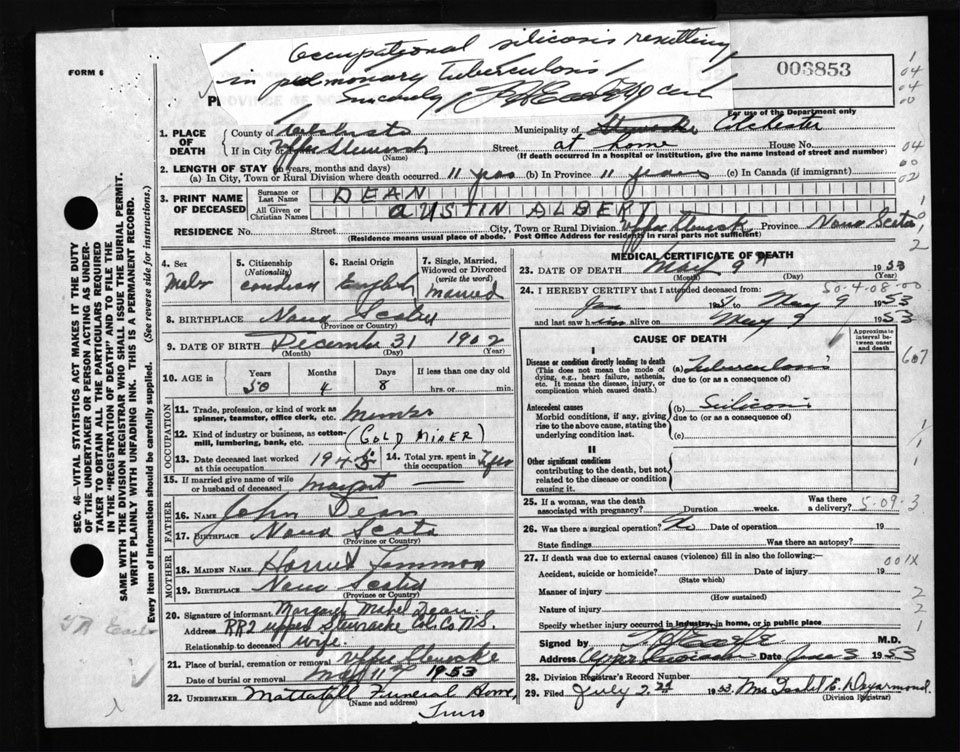 Occupational silicosis resulting
in pulmonary tuberculosis
Sincerely
FORM 6
003853
For use of the Department only
1. PLACE OF DEATH
County of Colchester Municipality of Colchester
If in City or Upper Stewiacke (Name) Street at home House No.
(If death occurred in a hospital or institution, give the name instead of street and number)
2. LENGTH OF STAY (in years, months and days)
(a) In City, Town or Rural Division where death occurred 11 years (b) In Province 11 years (c) In Canada (if immigrant)
3. PRINT NAME OF DECEASED
Surname or Last Name DEAN
All Given or Christian Names AUSTIN ALBERT
RESIDENCE No. Street City, Town or Rural Division Upper Stewiacke Province Nova Scotia
(Residence means usual place of abode. Post Office Address for residents in rural parts not sufficient)
4. Sex Male
5. Citizenship (Nationality) Canadian
6. Racial Origin English
7. Single, Married, Widowed or Divorced (write the word) Married
8. BIRTHPLACE Nova Scotia
(Province or Country)
9. DATE OF BIRTH December 31 1902
(Month) (Day) (Year)
10. AGE in Years Months Days If less than one day
50 4 8 hrs. or min.
OCCUPATION
11. Trade, profession, or kind of work as spinner, teamster, office clerk, etc.
12. Kind of industry or business, as cotton-mill, lumbering, bank, etc. (GOLD MINER)
13. Date deceased last worked at this occupation
14. Total yrs. spent in this occupation
15. If married give name of wife or husband of deceased Margaret
FATHER
16. NAME John Dean
17. BIRTHPLACE Nova Scotia
(Province or Country)
MOTHER
18. MAIDEN NAME
19. BIRTHPLACE Nova Scotia
(Province or Country)
20. Signature of informant Margaret Mabel Dean
Address RR2 Upper Stewiacke Col. Co N.S.
Relationship to deceased wife
21. Place of burial, cremation or removal Upper Stewiacke
Date of burial or removal May 11 1953
22. UNDERTAKER Mattatall Funeral Home,
(Name and address)
Truro
MEDICAL CERTIFICATE OF DEATH
23. DATE OF DEATH May 9 1953
(Day) (Year)
50-4-08-00
24. I HEREBY CERTIFY that I attended deceased from:
Jan to May 9 1953
and last saw h alive on May 9 1953
CAUSE OF DEATH
Approximate interval between onset and death
I
Disease or condition directly leading to death
(This does not mean the mode of dying, e.g., heart failure, asthenia, etc. It means the disease, injury, or complication which caused death.)
(a) Tuberculosis
due to (or as a consequence of)
Antecedent causes
Morbid conditions, if any, giving rise to the above cause, stating the underlying condition last.
(b) Silicosis
due to (or as a consequence of)
(c)
II
Other significant conditions
contributing to the death, but not related to the disease or condition causing it.
25. If a woman, was the death associated with pregnancy? Duration weeks. Was there a delivery?
5-09-3
26. Was there a surgical operation? No Date of operation 19
State findings Was there an autopsy?
27. If death was due to external causes (violence) fill in also the following:—
Accident, suicide or homicide? (State which) Date of injury 19
001X
Manner of injury
(How sustained)
Nature of injury
Specify whether injury occurred in industry, in home, or in public place
Signed by M.D.
Address Date June 3 1953
28. Division Registrar's Record Number
29. Filed July 2 1953 Mrs Isabel E. Deyarmond.
(Division Registrar)
SEC. 46—VITAL STATISTICS ACT MAKES IT THE DUTY
OF THE UNDERTAKER OR PERSON ACTING AS UNDERTAKER TO OBTAIN ALL THE PARTICULARS REQUIRED
IN THE "REGISTRATION OF DEATH" AND TO FILE THE
SAME WITH THE DIVISION REGISTRAR WHO SHALL ISSUE THE BURIAL PERMIT.
WRITE PLAINLY WITH UNFADING INK. THIS IS A PERMANENT RECORD.
Every item of Information should be carefully supplied. (See reverse side for instructions.)